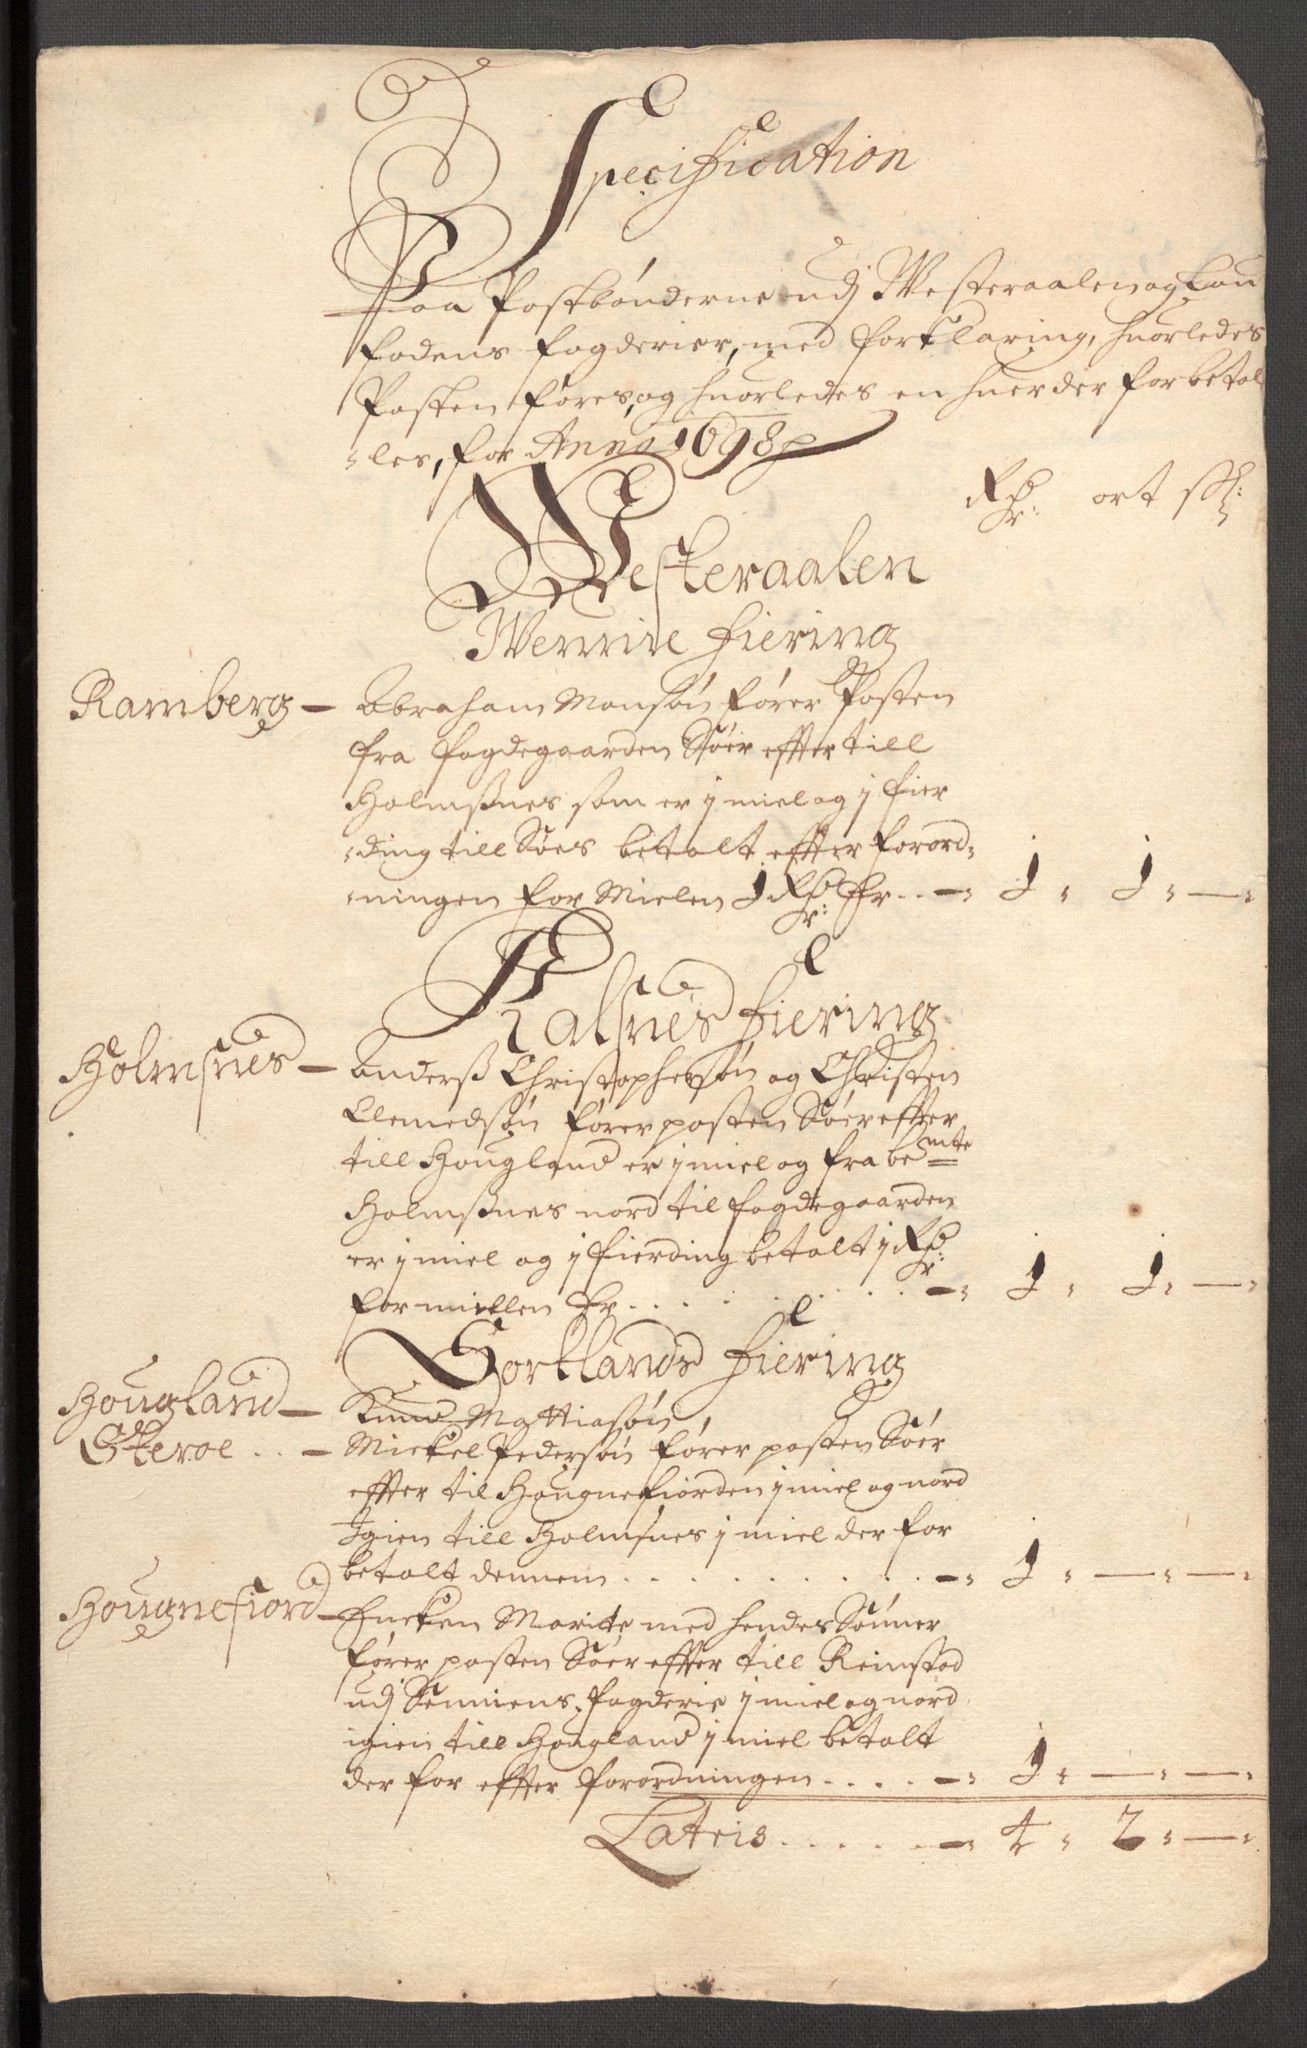 Specification
Paa Postbønderne udj Westeraalen og Lou
fodens fogderier, med forklaring, huorledes
Posten føres, og huorledes en huer der for betal
les, for Anno 1698
Rdr: ort ſß:
Westeraalen
Wennie fiering
Ramberg — Abraham Monsøn fører Posten
fra fogdegaarden Søer effter till
Holmsnes som er j miel og j fier
ding till Søes betalt effter forord-
ningen for Mielen 1 Rdr: Er .. — 1 , 1 , — ,
Kalsnes fiering
Holmsnes — Anderß Christophersøn og Christen
Clemedsøn fører posten Søer effter
till Hougland er j miel og fra bemte
Holmsnes nord til fogdegaarden
er j miel og j fierding betalt j Rdr:
for miellen Er . . . . . . — 1 , 1 , — ,
Sortlands fiering
Hougland — Knud Mattiasøn,
Osteroe .. — Mickel Pedersøn fører posten Søer
effter til Hougnefiorden j miel og nord
Igien till Holmsnes j miel der for
betalt dennem . . . . . . — 1 , — , — ,
Hougnefiord — Encken Maritte med hendes Sønner
fører posten Søer effter till Reinstad
udj Senniens fogderie j miel og nord
igien till Hougland j miel betalt
der for effter forordningen .... — 1 , — , — ,
Lateris . . . . . — 4 , 2 , — ,